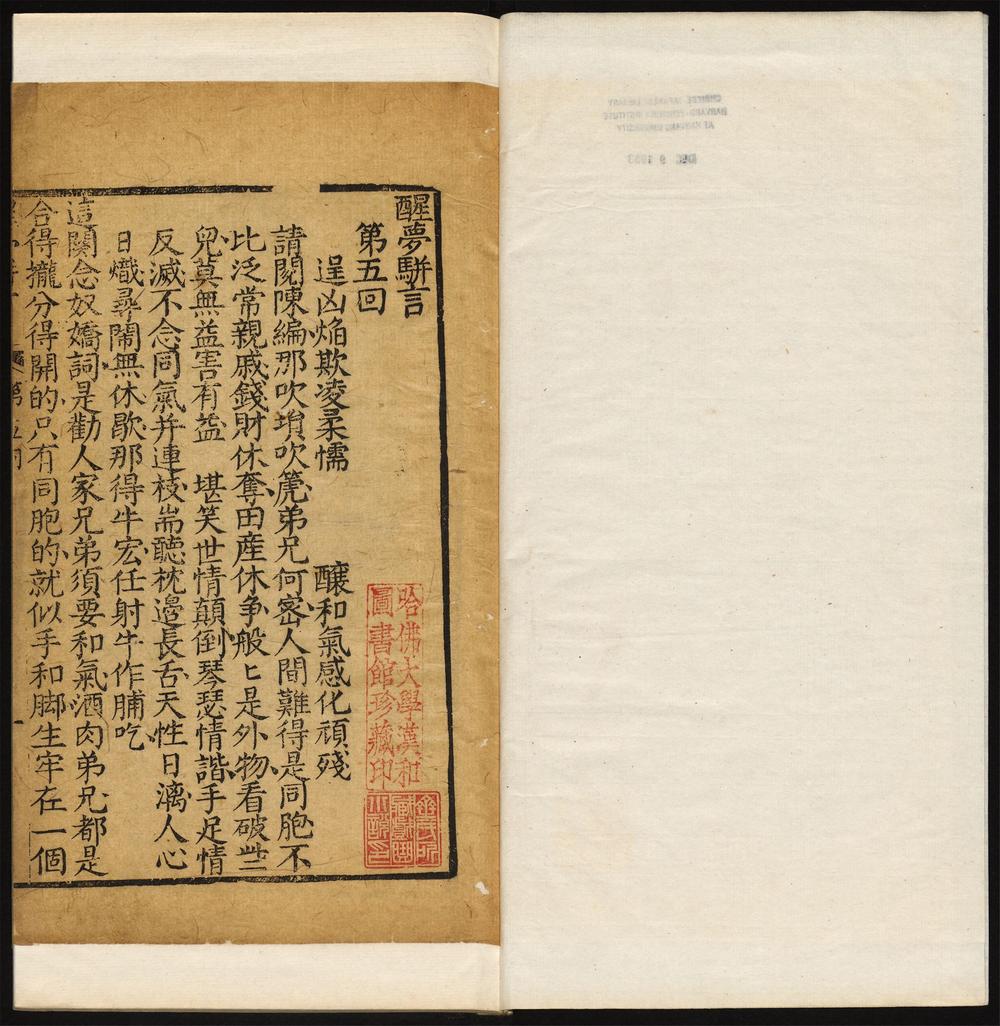 醒夢駢言
第五回
逞凶焰欺凌柔懦 釀和氣感化頑殘
請閱陳編那吹塤吹箎弟兄何密人間難得是同胞不
比泛常親戚錢財休奪田産休争般匕是外物看破些
兒莫無益害有益 堪笑世情顛倒琴瑟情諧手足情
反滅不念同氣并連枝耑聽枕邊長舌天性日漓人心
日熾尋鬧無休歇那得牛宏任射牛作脯吃
這闋念奴嬌詞是勸人家兄弟須要和氣酒肉弟兄都是
合得攏分得開的只有同胞的就似手和脚生牢在一個
第五回
一
哈佛大學漢和
圖書館珍藏印
CHINESE JAPANESE LIBRARY
HARVARD-YENCHING INSTITUTE
AT HARVARD UNIVERSITY
DEC 9 1953